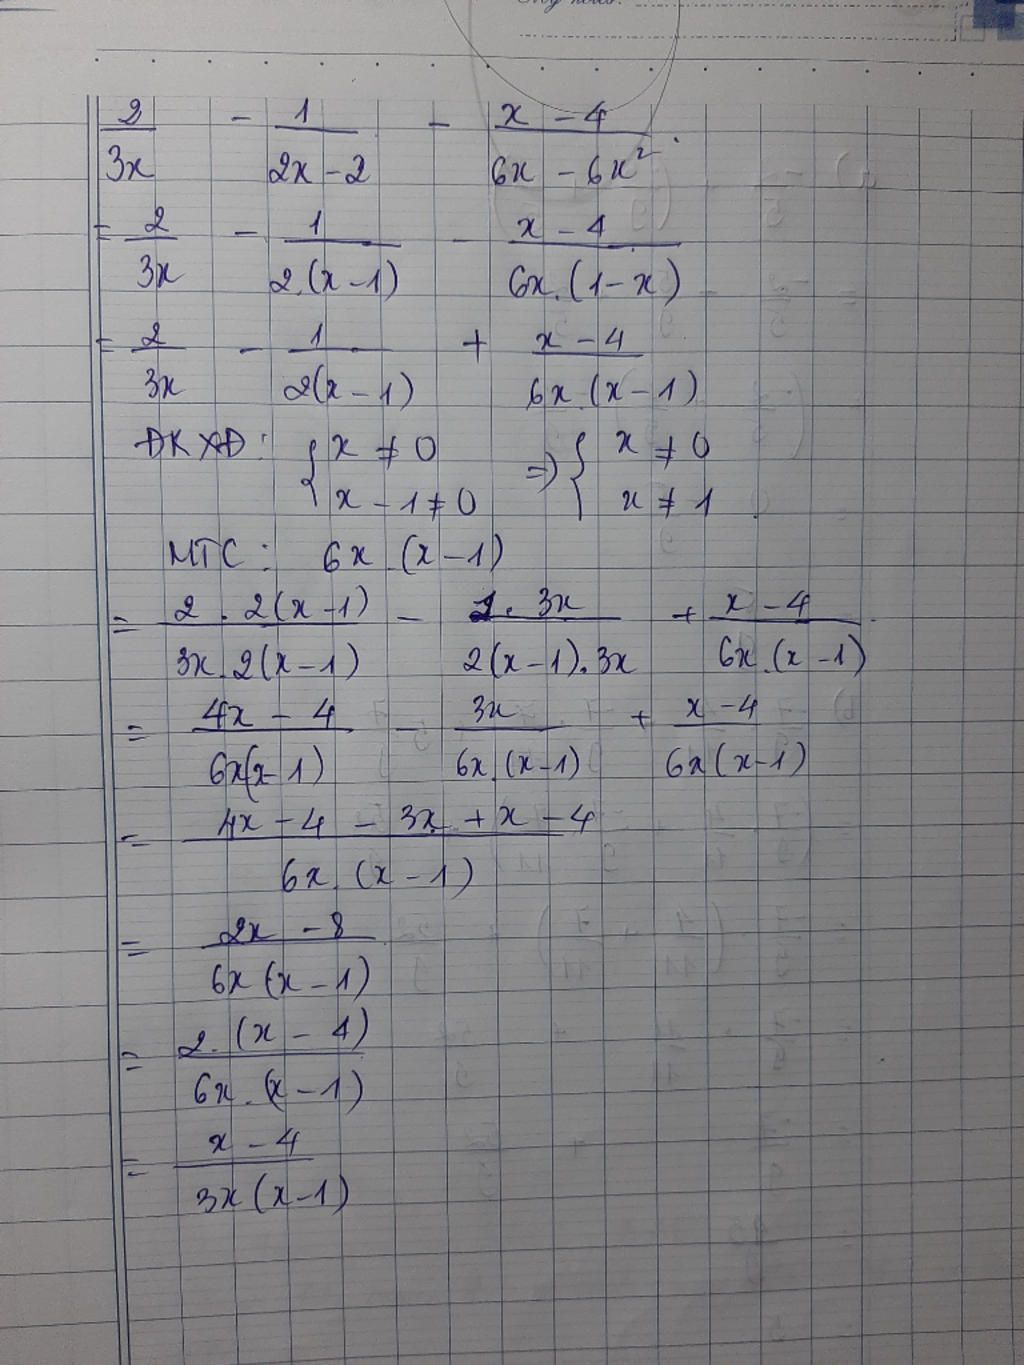 My notes:
2/3x - 1/(2x - 2) - (x - 4)/(6x - 6x²).
= 2/3x - 1/(2.(x - 1)) - (x - 4)/(6x.(1 - x))
= 2/3x - 1/(2(x - 1)) + (x - 4)/(6x.(x - 1))
ĐKXĐ: { x ≠ 0 ; x - 1 ≠ 0 => { x ≠ 0 ; x ≠ 1
MTC: 6x.(x - 1)
= (2.2(x - 1))/(3x.2(x - 1)) - (1.3x)/(2(x - 1).3x) + (x - 4)/(6x.(x - 1))
= (4x - 4)/(6x(x - 1)) - 3x/(6x.(x - 1)) + (x - 4)/(6x(x - 1))
= (4x - 4 - 3x + x - 4)/(6x.(x - 1))
= (2x - 8)/(6x(x - 1))
= (2.(x - 4))/(6x.(x - 1))
= (x - 4)/(3x(x - 1))